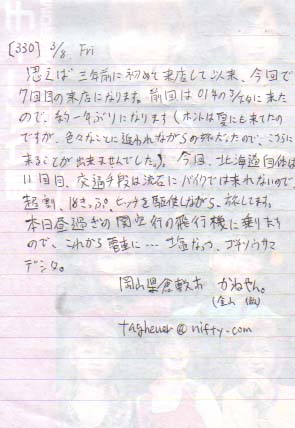 [330] 3/8. Fri
思えば三年前に初めて来店して以来、今回で
7回目の来店になります。前回は01年の3/
に来た
ので、約一年ぶりになります(ホントは夏にも来たの
ですが、色々なことに追われながらの旅だったので、こちらに
来ることが出来ませんでした。)。今回、北海道自体は
11回目、交通手段は流石にバイクでは来れないので
超割、18きっぷ、ヒッチを駆使しながら、旅してます。
本日昼過ぎの関空行の飛行機に乗ります
ので、これから電車に…乗 なっつ、ゴチソウサマ
デシタ。
岡山県倉敷市 かねやん。
(金山
tagheuer@nifty.com